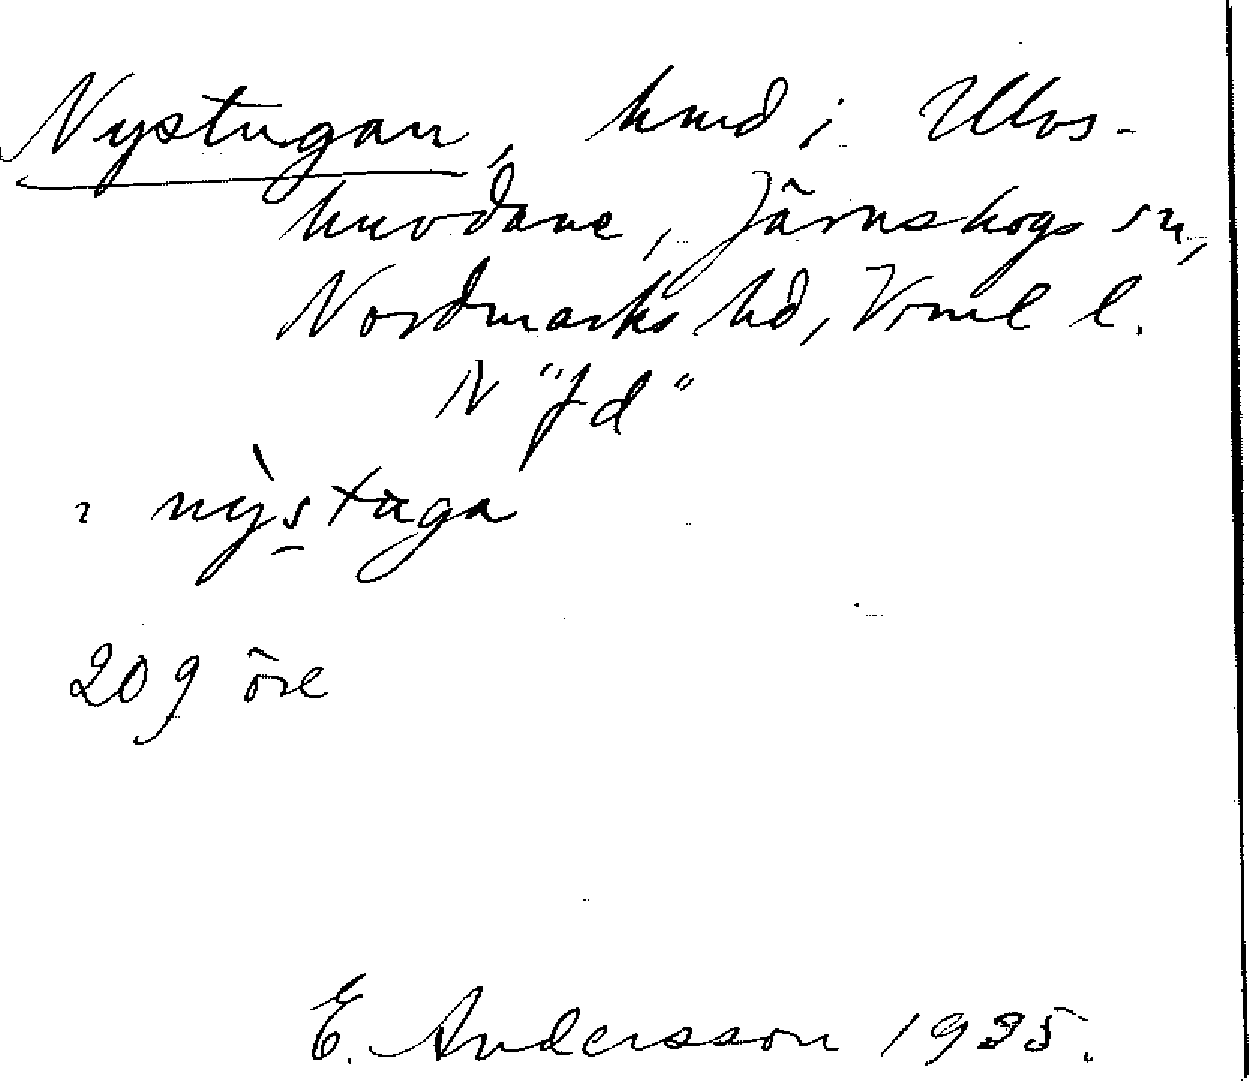 Nystugan, hmd i Ulvs-
huvdane, Järnskogs sn,
Nordmarks hd, Vrml l.
N "Jd"
nỳstuga
209 öre
E. Andersson 1935.